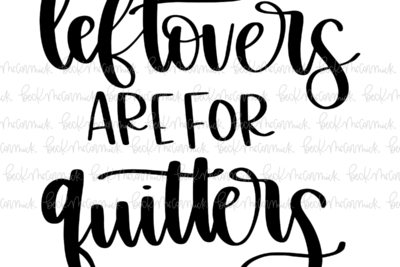 leftovers
ARE FOR
quitters